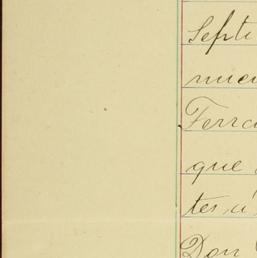 Septi
nuev
Ferra
que
tes a
Don